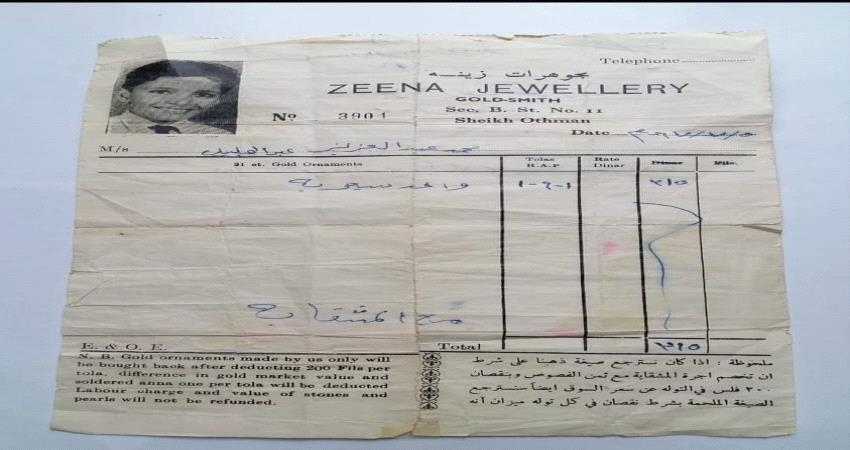 Telephone
مجوهرات زينه
ZEENA JEWELLERY
GOLD-SMITH
No 3904
Sec. B. St. No. 11
Sheikh Othman
Date
M/s محمد عبد العزيز
21 ct. Gold Ornaments
Tolas R.A.P
Rate Dinar
Dinar
Fils.
واحد
١-٦-١
٣١٥
E. & O. E.
Total ٣١٥
N. B. Gold ornaments made by us only will
be bought back after deducting 200 Fils per
tola, difference in gold market value and
soldered anna one per tola will be deducted
Labour charge and value of stones and
pearls will not be refunded.
ملحوظة : اذا كان نسترجع صيغة ذهبنا على شرط
ان تخصم اجرة المشقاية مع ثمن الفصوص وبنقصان
٢٠٠ فلس في التوله عن سعر السوق ايضا سنسترجع
الصيغة الملحمة بشرط نقصان في كل توله ميزان آنه